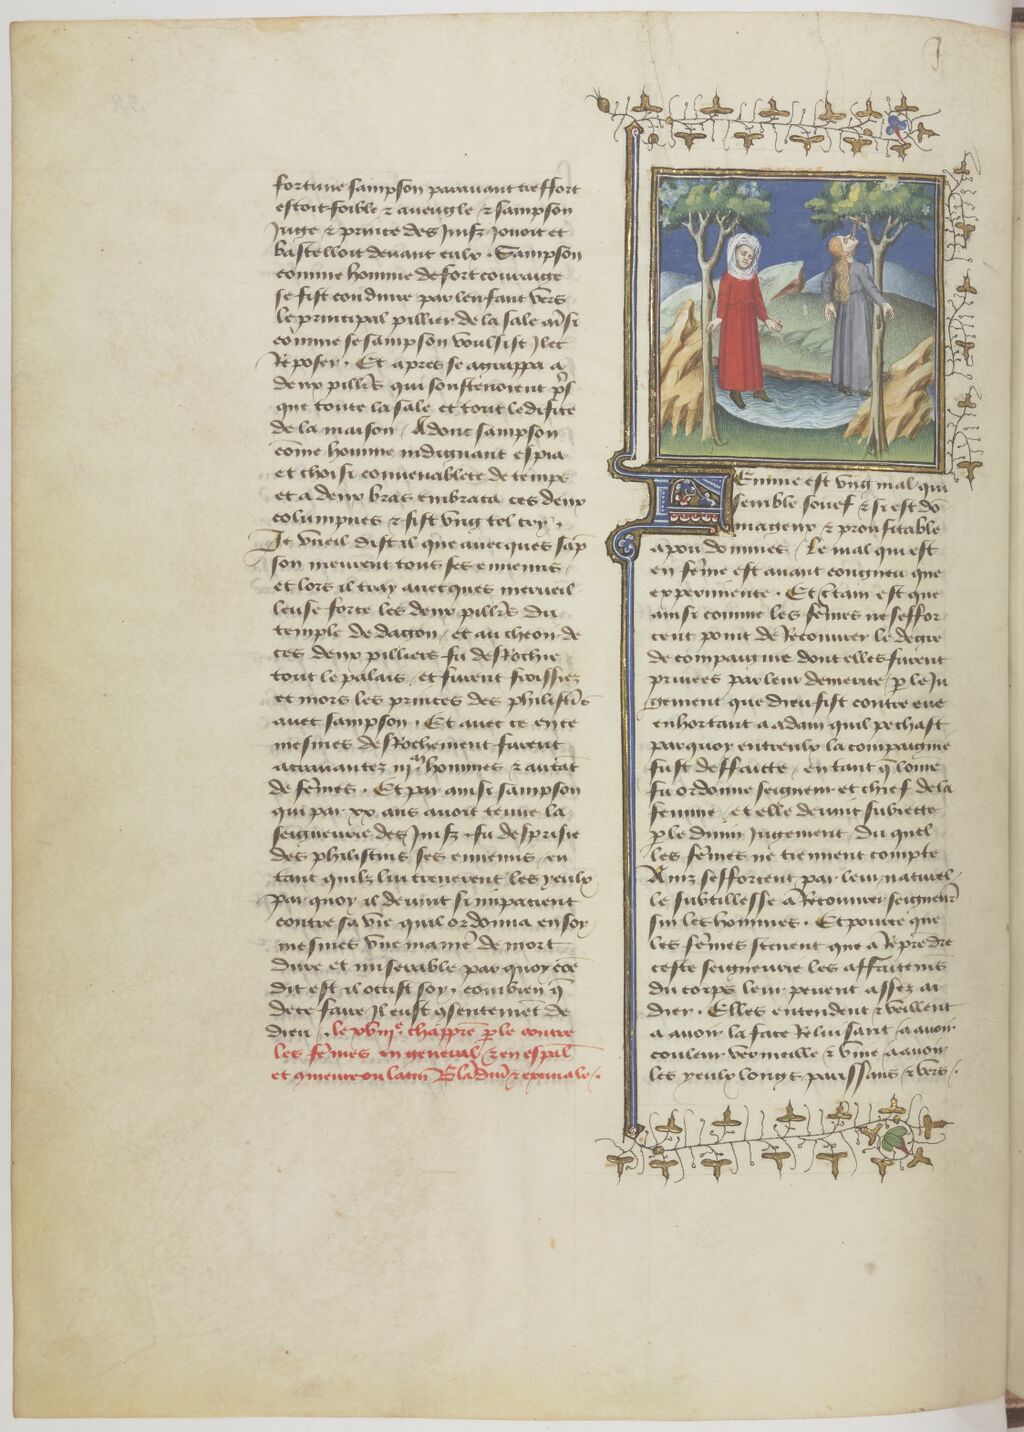 fortune sampson parauant tresfort
estoit foible & aueugle & sampson
Juge & prince des Juifz Jouoit et
bastelloit deuant eulx . Sampson
comme homme de fort couraige
se fist conduire par lenfant vers
le principal pillier de la sale aĩsi
cõme se sampson voulsist Illec
Reposer . Et apres se agrappa a
deux pillrs qui soustenoient
que toute la sale et tout ledifice
de la maison / Adonc sampson
cõme homme indignant espia
et choisi conuenablete de temps
et a deux bras embraca ces deux
columpnes & fist vng tel cry .
Je vueil dist il que auecques sãp
son meurent tous ses ennemis
et lors il tray auecques merueil
leuse force les deux pillrs du
temple de dagon / et au cheon de
ces deux pilliers fu desRochie
tout le palais / et furent froissiez
et mors les princes des philistĩs
auec sampson . Et auec ce en ce
mesmes desRochement furent
acrauantez iijm hommes & autãt
de fẽmes . Et par ainsi sampson
qui par xx ans auoit tenue la
seigneurie des Juifz fu desprisie
des philistins ses ennemis / en
tant quilz lui creuerent les yeulx
par quoy il deuint si impacient
contre sa vie quil ordonna en soy
mesmes vne manre de mort
dure et miserable par quoy cõe
dit est il occist soy . combien q̃
de ce faire Il eust gsentemẽt de
dieu . le xviije chappre ple contre
les fẽmes en general / & en espãl
et gmence ou latin Blãdũ & exiciale .
Emme est vng mal qui
semble souef & si est dõ
mageux & proufitable
a pou dommes / Le mal qui est
en fẽme est auant congneu que
experimente . Et Ctain est que
ainsi comme les fẽmes ne seffor
cent point de Recouurer le degre
de compaignie dont elles furent
priuees par leur demerite p le Ju
gement que dieu fist contre eue
enhortant a adam quil pechast
par quoy entreulx la compaignie
fust deffaicte / en tant q̃ lõme
fu ordonne seigneur et chief de la
femme / et elle deuint subiecte
p le diuin Jugement / du quel
les fẽmes ne tiennent compte
Ainz sefforcent par leur naturel
le subtillesse a Recouurer seigneurie
sur les hommes . Et pource que
les fẽmes sceuent que a Reprẽdre
ceste seigneurie les affaitemẽs
du corps leur peuent assez ai
dier . Elles entendent & veillent
a auoir la face Reluisant / a auoir
couleur vermeille & viue / a auoir
les yeulx longs / & vers .